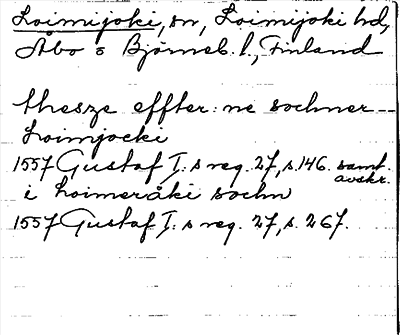 Loimijoki, sn, Loimijoki hd,
Åbo o Björneb. l., Finland
thesze effter: ne sochner --
Loimjocki
1557 Gustaf I:s reg. 27, s. 146. samt. avskr.
i Loimeråki sochn
1557 Gustaf I:s reg. 27, s. 267.